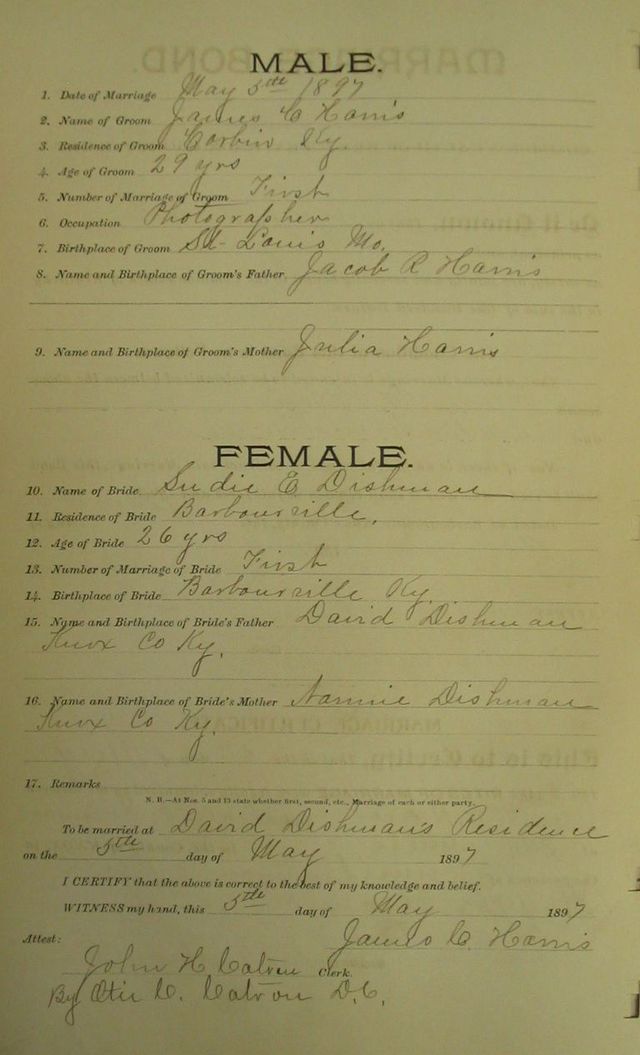 MALE.
1. Date of Marriage May 5th 1897
2. Name of Groom James C Harris
3. Residence of Groom Corbin Ky.
4. Age of Groom 29 yrs
5. Number of Marriage of Groom First
6. Occupation Photographer
7. Birthplace of Groom St Louis Mo.
8. Name and Birthplace of Groom's Father Jacob R Harris
9. Name and Birthplace of Groom's Mother Julia Harris
FEMALE.
10. Name of Bride Sudie E Dishman
11. Residence of Bride Barbourville,
12. Age of Bride 26 yrs
13. Number of Marriage of Bride First
14. Birthplace of Bride Barbourville Ky.
15. Name and Birthplace of Bride's Father David Dishman
Knox Co Ky.
16. Name and Birthplace of Bride's Mother Nannie Dishman
Knox Co Ky.
17. Remarks
N. B.—At Nos. 5 and 13 state whether first, second, etc., Marriage of each or either party.
To be married at David Dishman's Residence
on the 5th day of May 1897
I CERTIFY that the above is correct to the best of my knowledge and belief.
WITNESS my hand, this 5th day of May 1897
Attest: James C. Harris
John H Catron Clerk.
By Otis C. Catron D.C.